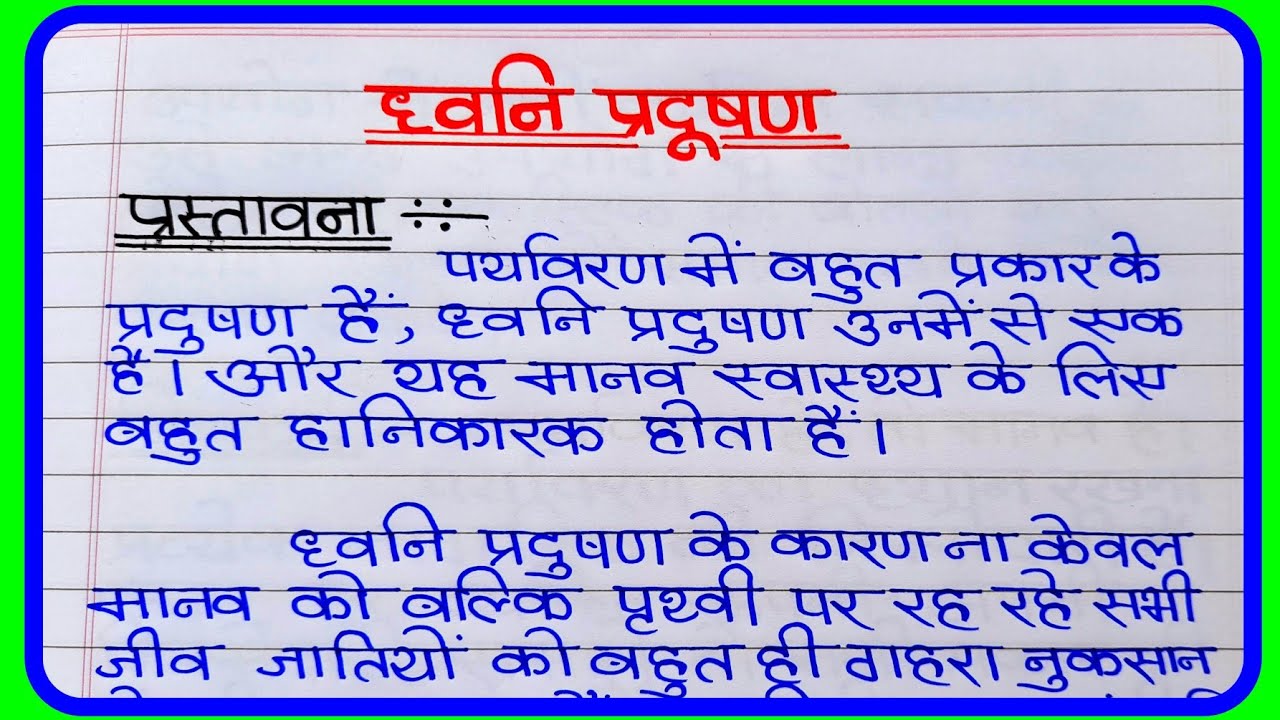 ध्वनि प्रदूषण
प्रस्तावना ÷÷
पर्यावरण में बहुत प्रकार के
प्रदुषण हैं, ध्वनि प्रदुषण उनमें से एक
है। और यह मानव स्वास्थ्य के लिए
बहुत हानिकारक होता हैं।
ध्वनि प्रदुषण के कारण ना केवल
मानव को बल्कि पृथ्वी पर रह रहे सभी
जीव जातियों को बहुत ही गहरा नुकसान